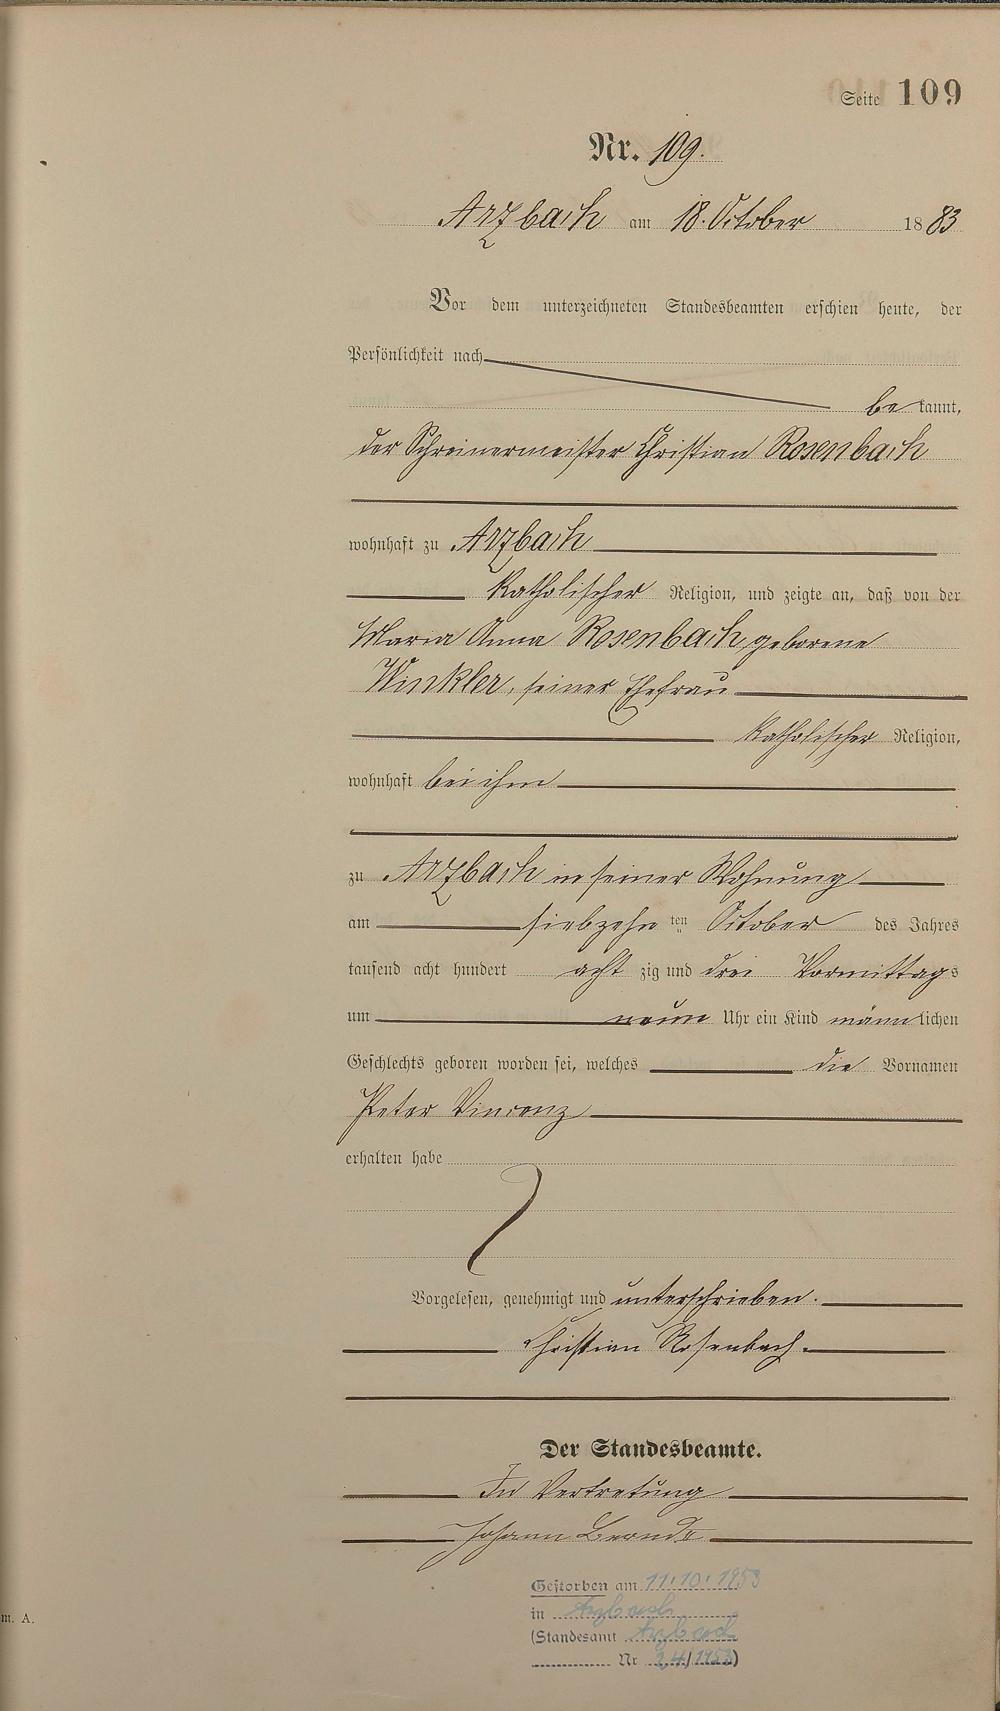 Seite 109
Nr. 109.
Arzbach am 18. October 1883
Vor dem unterzeichneten Standesbeamten erschien heute, der
Persönlichkeit nach
bekannt,
der Schreinermeister Christian Rosenbach
wohnhaft zu Arzbach
katholischer Religion, und zeigte an, daß von der
Maria Anna Rosenbach geborene
Winkler, seiner Ehefrau
katholischer Religion,
wohnhaft bei ihm
zu Arzbach in seiner Wohnung
am siebzehnten October des Jahres
tausend acht hundert achtzig und drei Vormittags
um neun Uhr ein Kind männlichen
Geschlechts geboren worden sei, welches die Vornamen
Peter Vincenz
erhalten habe
Vorgelesen, genehmigt und unterschrieben.
Christian Rosenbach.
Der Standesbeamte.
In Vertretung
Johann
Gestorben am 11.10.1953
in Arzbach
(Standesamt Arzbach
Nr 24/1953)
m. A.